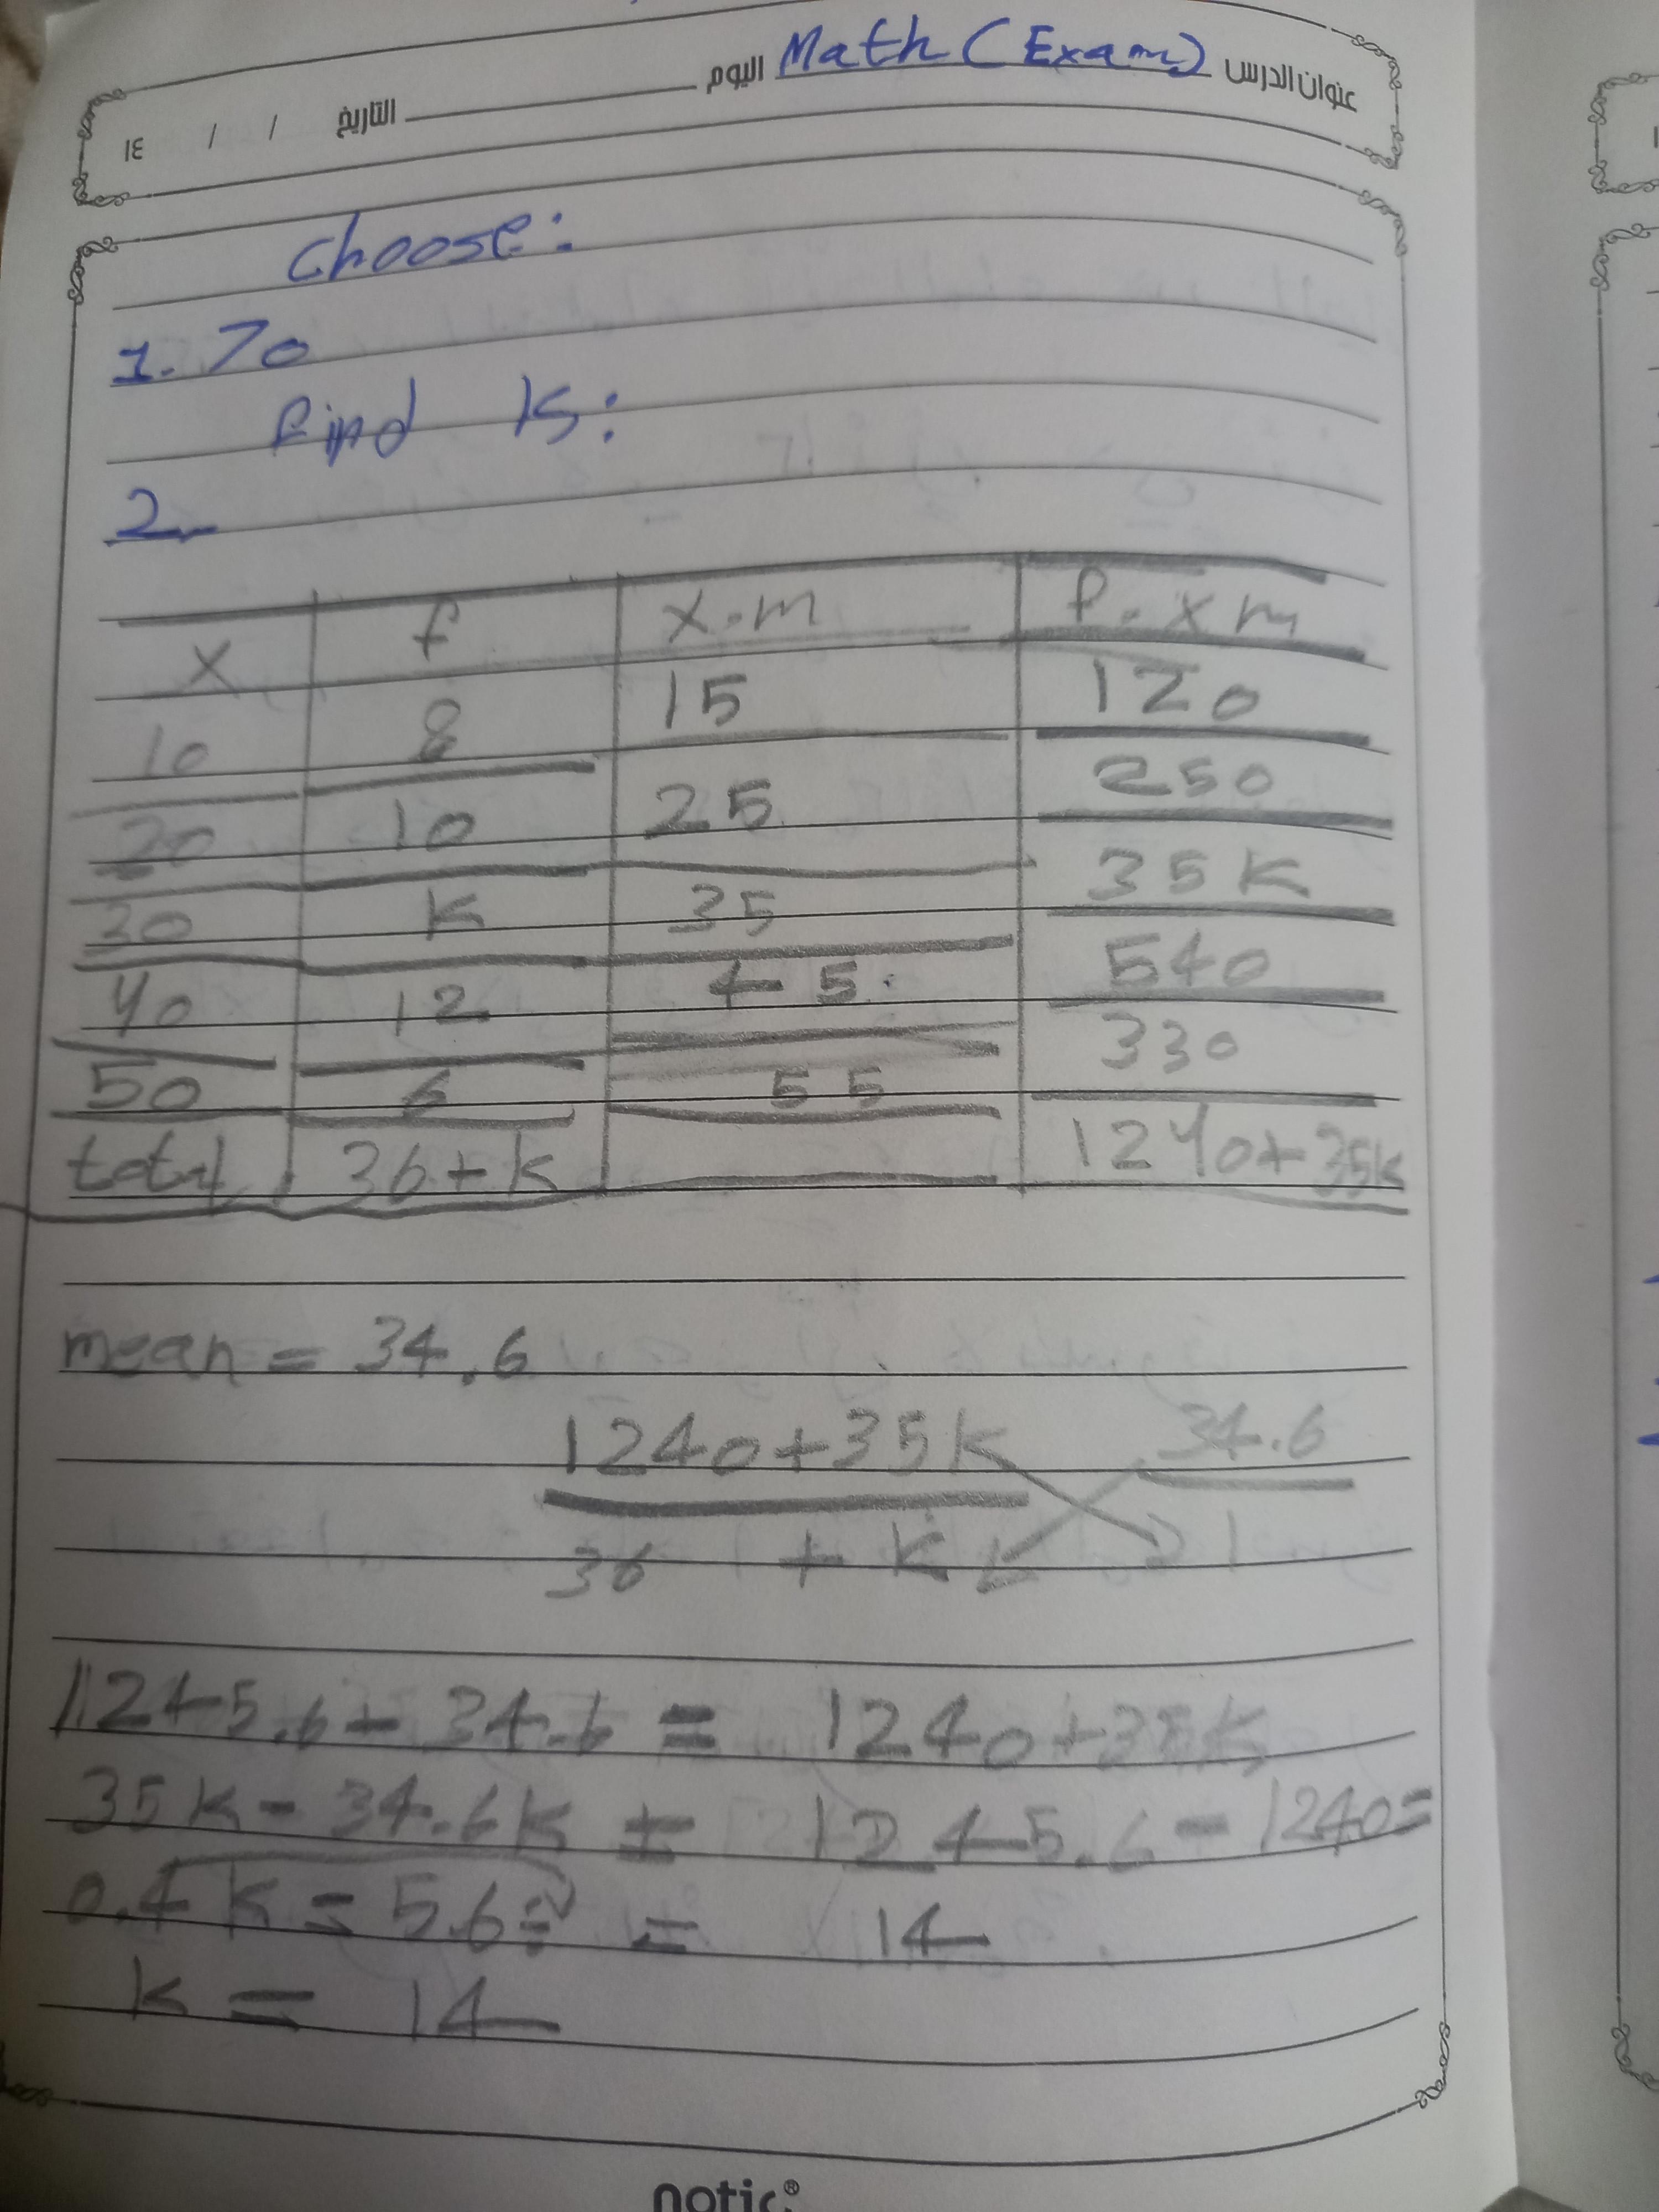 عنوان الدرس Math (Exam) اليوم التاريخ / / ١٤
choose:
1. 70
find k:
2.
x f x.m f.xm
10 8 15 120
20 10 25 250
30 k 35 35k
40 12 45 540
50 6 55 330
total 36+k 1240+35k
mean = 34.6
1240+35k 34.6
36 + k 1
1245.6+34.6 = 1240+35k
35k-34.6k = 1245.6-1240=
0.4k=5.6÷ = 14
k = 14
notic®